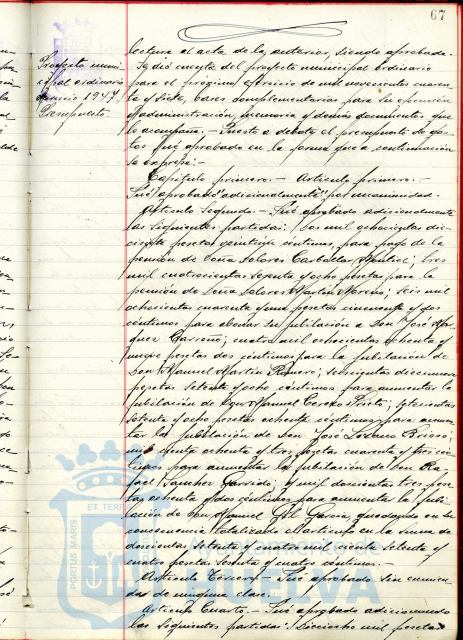 67
lectura el acta de la anterior, siendo aprobada.
Proyecto muni-
cipal ordinario
ejercicio 1947.
Presupuesto.
Se dió cuenta del proyecto municipal ordinario
para el próximo ejercicio de mil novecientos cuaren-
ta y siete, bases complementarias para su ejecución
y administración, memoria y demás documentos que
lo acompaña. - Puesto a debate el presupuesto de gas-
tos fué aprobado en la forma que a continuación
se expresa: -
Capítulo primero. - Artículo primero. -
Fué aprobado "adicionalmente" por unanimidad.
Artículo Segundo. - Fué aprobado adicionalmente
las siguientes partidas: dos mil ochocientas die-
cisiete pesetas veintiun céntimos, para pago de la
pensión de Doña Dolores Carballar; tres
mil cuatrocientas setenta y ocho pesetas para la
pensión de Doña Dolores Martín Moreno; seis mil
ochocientas cuarenta y una pesetas cincuenta y dos
céntimos para abonar su jubilación a Don José Már-
quez Carreño; cuatro mil ochocientas ochenta y
pesetas dos céntimos para la jubilación de
Don Manuel Martín Romero; seiscientas diecinueve
pesetas setenta y ocho céntimos para aumentar la
jubilación de Don Manuel Cerezo; setecientas
setenta y ocho pesetas ochenta céntimos para aumen-
tar la jubilación de Don José Lozano;
ochenta y tres pesetas cuarenta y tres cén-
timos para aumentar la jubilación de Don Ra-
fael Sánchez Garrido; y mil doscientas tres pese-
tas ochenta y dos céntimos para aumentar la jubi-
lación de Don Manuel Gil García, quedando en su
consecuencia totalizado el artículo en la suma de
doscientas setenta y cuatro mil ciento setenta y
cuatro pesetas sesenta y cuatro céntimos. -
Artículo Tercero. - Fué aprobado sin enmien-
das de ninguna clase.
Artículo Cuarto. - Fué aprobado adicionando
las siguientes partidas: Dieciocho mil pesetas
PORTUS MARIS ET TERRAE
Ayuntamiento de
HUELVA